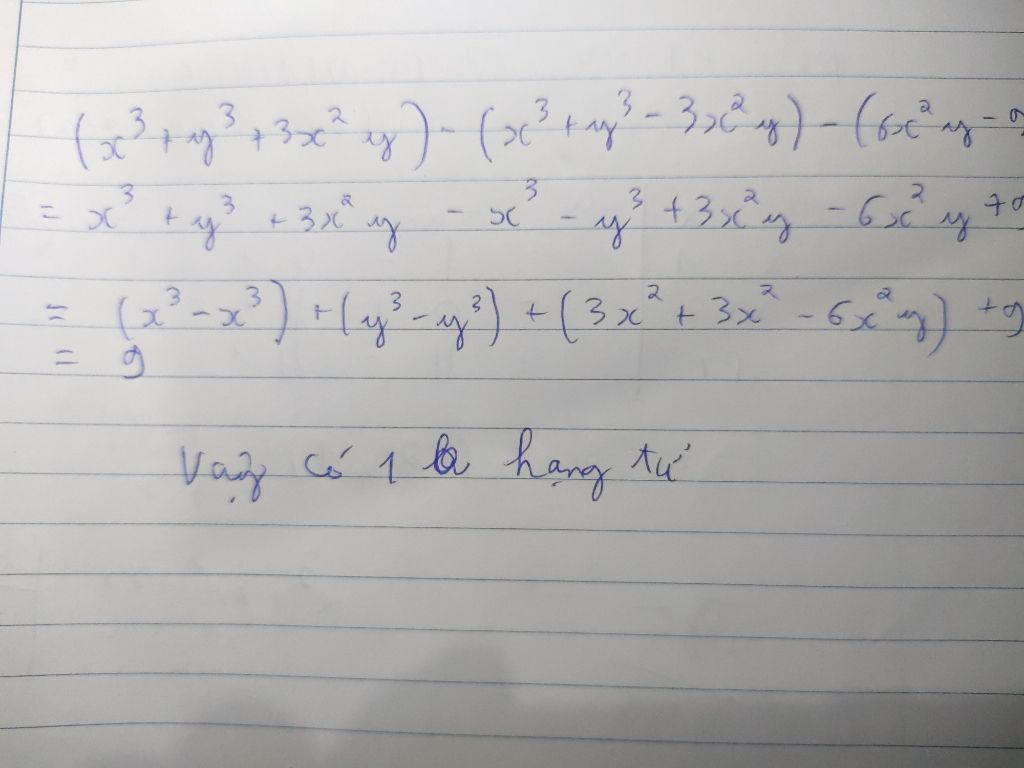 (x³ + y³ + 3x² y) - (x³ + y³ - 3x² y) - (6x² y - 9
= x³ + y³ + 3x² y - x³ - y³ + 3x² y - 6x² y + 9
= (x³ - x³) + (y³ - y³) + (3x² + 3x² - 6x² y) + 9
= 9
Vậy có 1 hạng tử